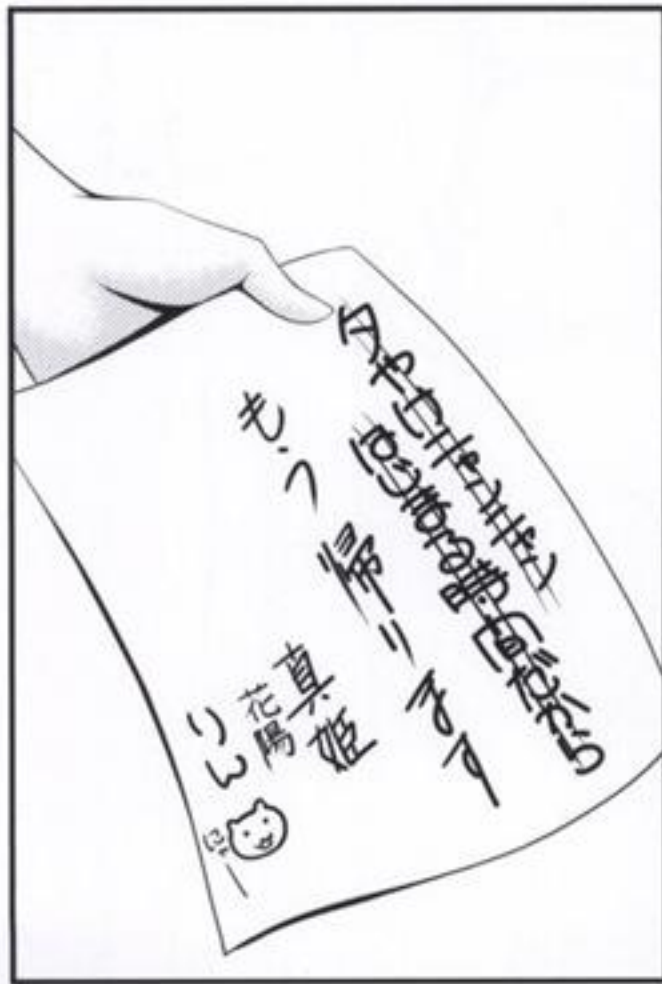 夕やけニャンニャン
はじまる時間だから
もう帰ります
真姫
花陽
りん
にゃー